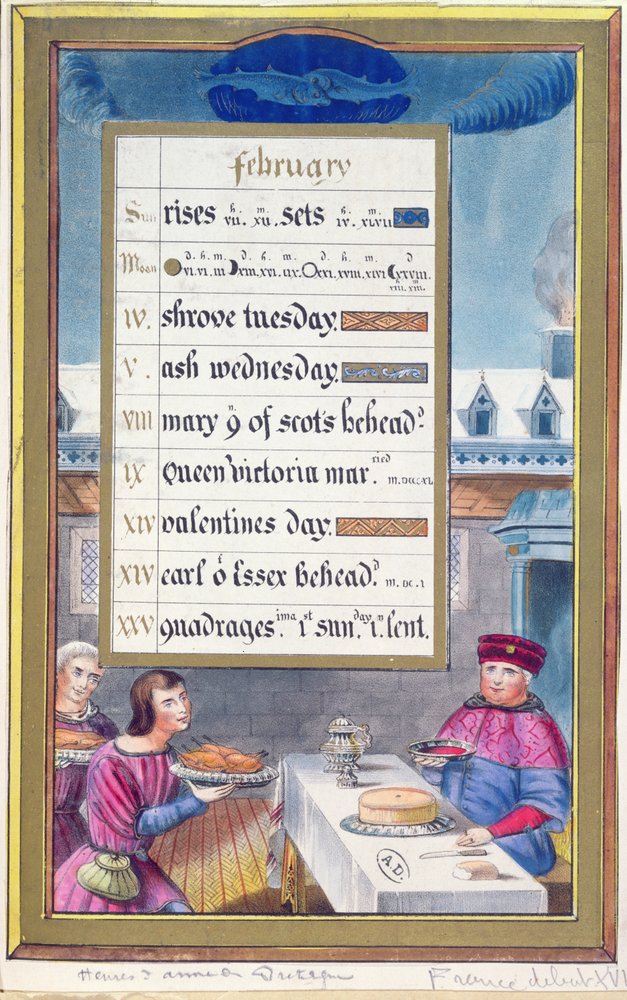 february
Sun rises h. VII. m. XII. sets h. IV. m. XLVII
Moon d. h. m. VI. VI. III d. h. m. XIII. XXI. IX. d. h. m. XXI. XVIII. XLVI d XXVIII.
IV. shrove tuesday.
V. ash wednesday.
VIII mary qn of scots behead.d
IX Queen victoria mar.ried M.DCCCXL
XIV valentines day.
XIV earl of Essex behead.d M.DC.I
XXV quadrages.ima 1st sun.day in lent.
A.D.
Heures d'anne de Bretagne
France début XVI